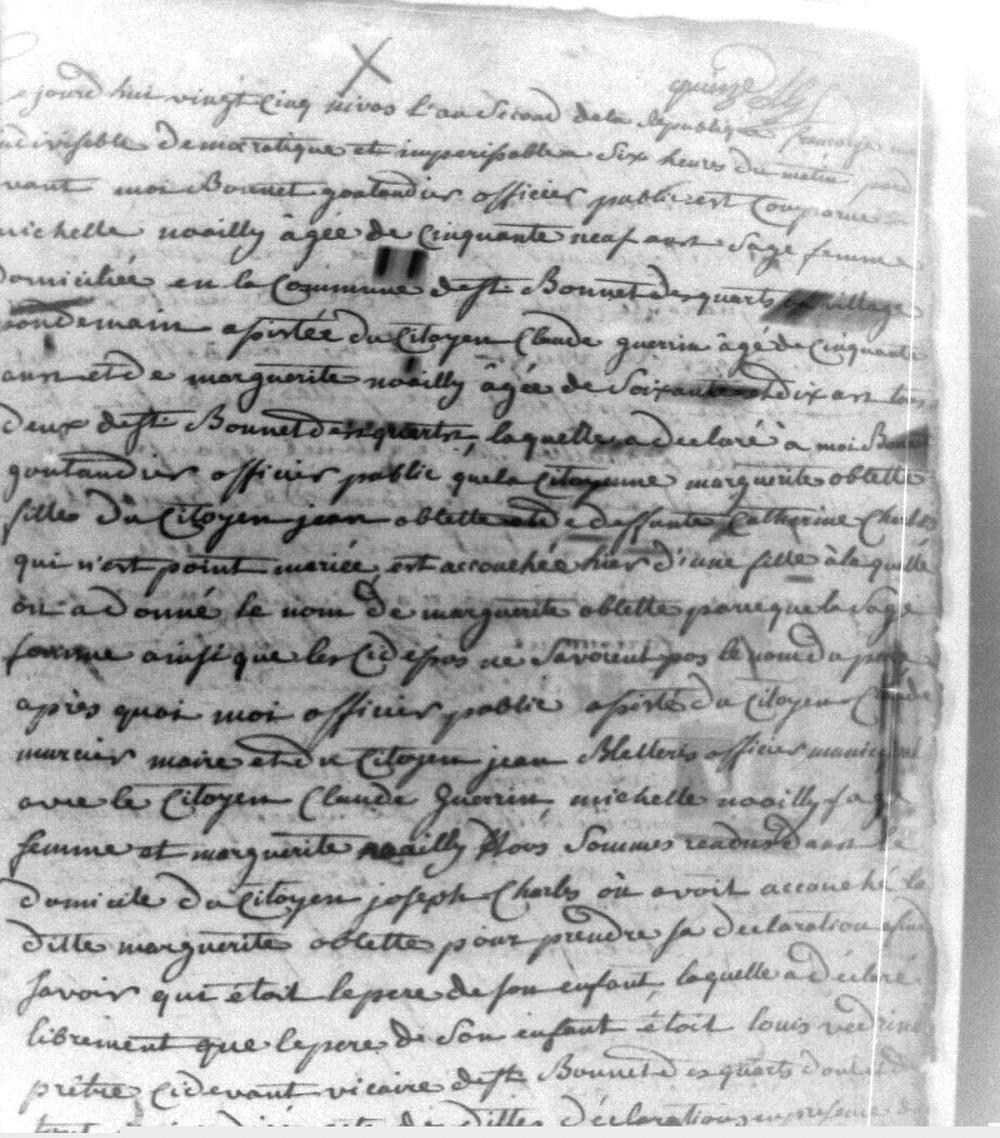 quinze
jourd hui vingt cinq nivos l'an Second de la Republique francoise
indivisible democratique et imperissable a Six heures du matin pard
vant moi Bonnet goutaudier officier public est Comparue
michelle noailly âgée de Cinquante neuf ans Sage femme
Domiciliée en la Commune de st Bonnet des quarts village
assistée du Citoyen Claude guerin âgé de Cinquante
ans et de marguerite noailly âgée de Soixante et dix ans tous
deux de st Bonnet des quarts, laquelle a declaré à moi Bonnet
goutaudier officier public que la Citoyenne marguerite oblette
fille du Citoyen jean oblette et de deffunte Catherine Charles
qui n'est point mariée, est accouchée hier d'une fille à laquelle
on a donné le nom de marguerite oblette parceque la Sage
femme ainsi que les Cid ne Savoient pas le nom du pere
après quoi moi officier public assisté du Citoyen Claude
murcier maire et du Citoyen jean Bletterie officier municipal
avec le Citoyen Claude Guerrin michelle noailly sage
femme et marguerite noailly Nous Sommes rendus dans le
domicile du Citoyen joseph Charles où avoit accouché la
ditte marguerite oblette pour prendre sa declaration afin de
savoir qui étoit le pere de son enfant, laquelle a déclaré
librement que le pere de Son enfant étoit louis vedrine
prêtre Cidevant vicaire de st Bonnet des quarts dont et de
dittes déclarations en presence